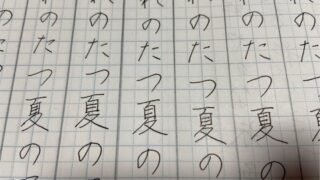 のたつ夏の
のたつ夏の
のたつ夏の
のたつ夏の
のたつ夏の
のたつ夏の